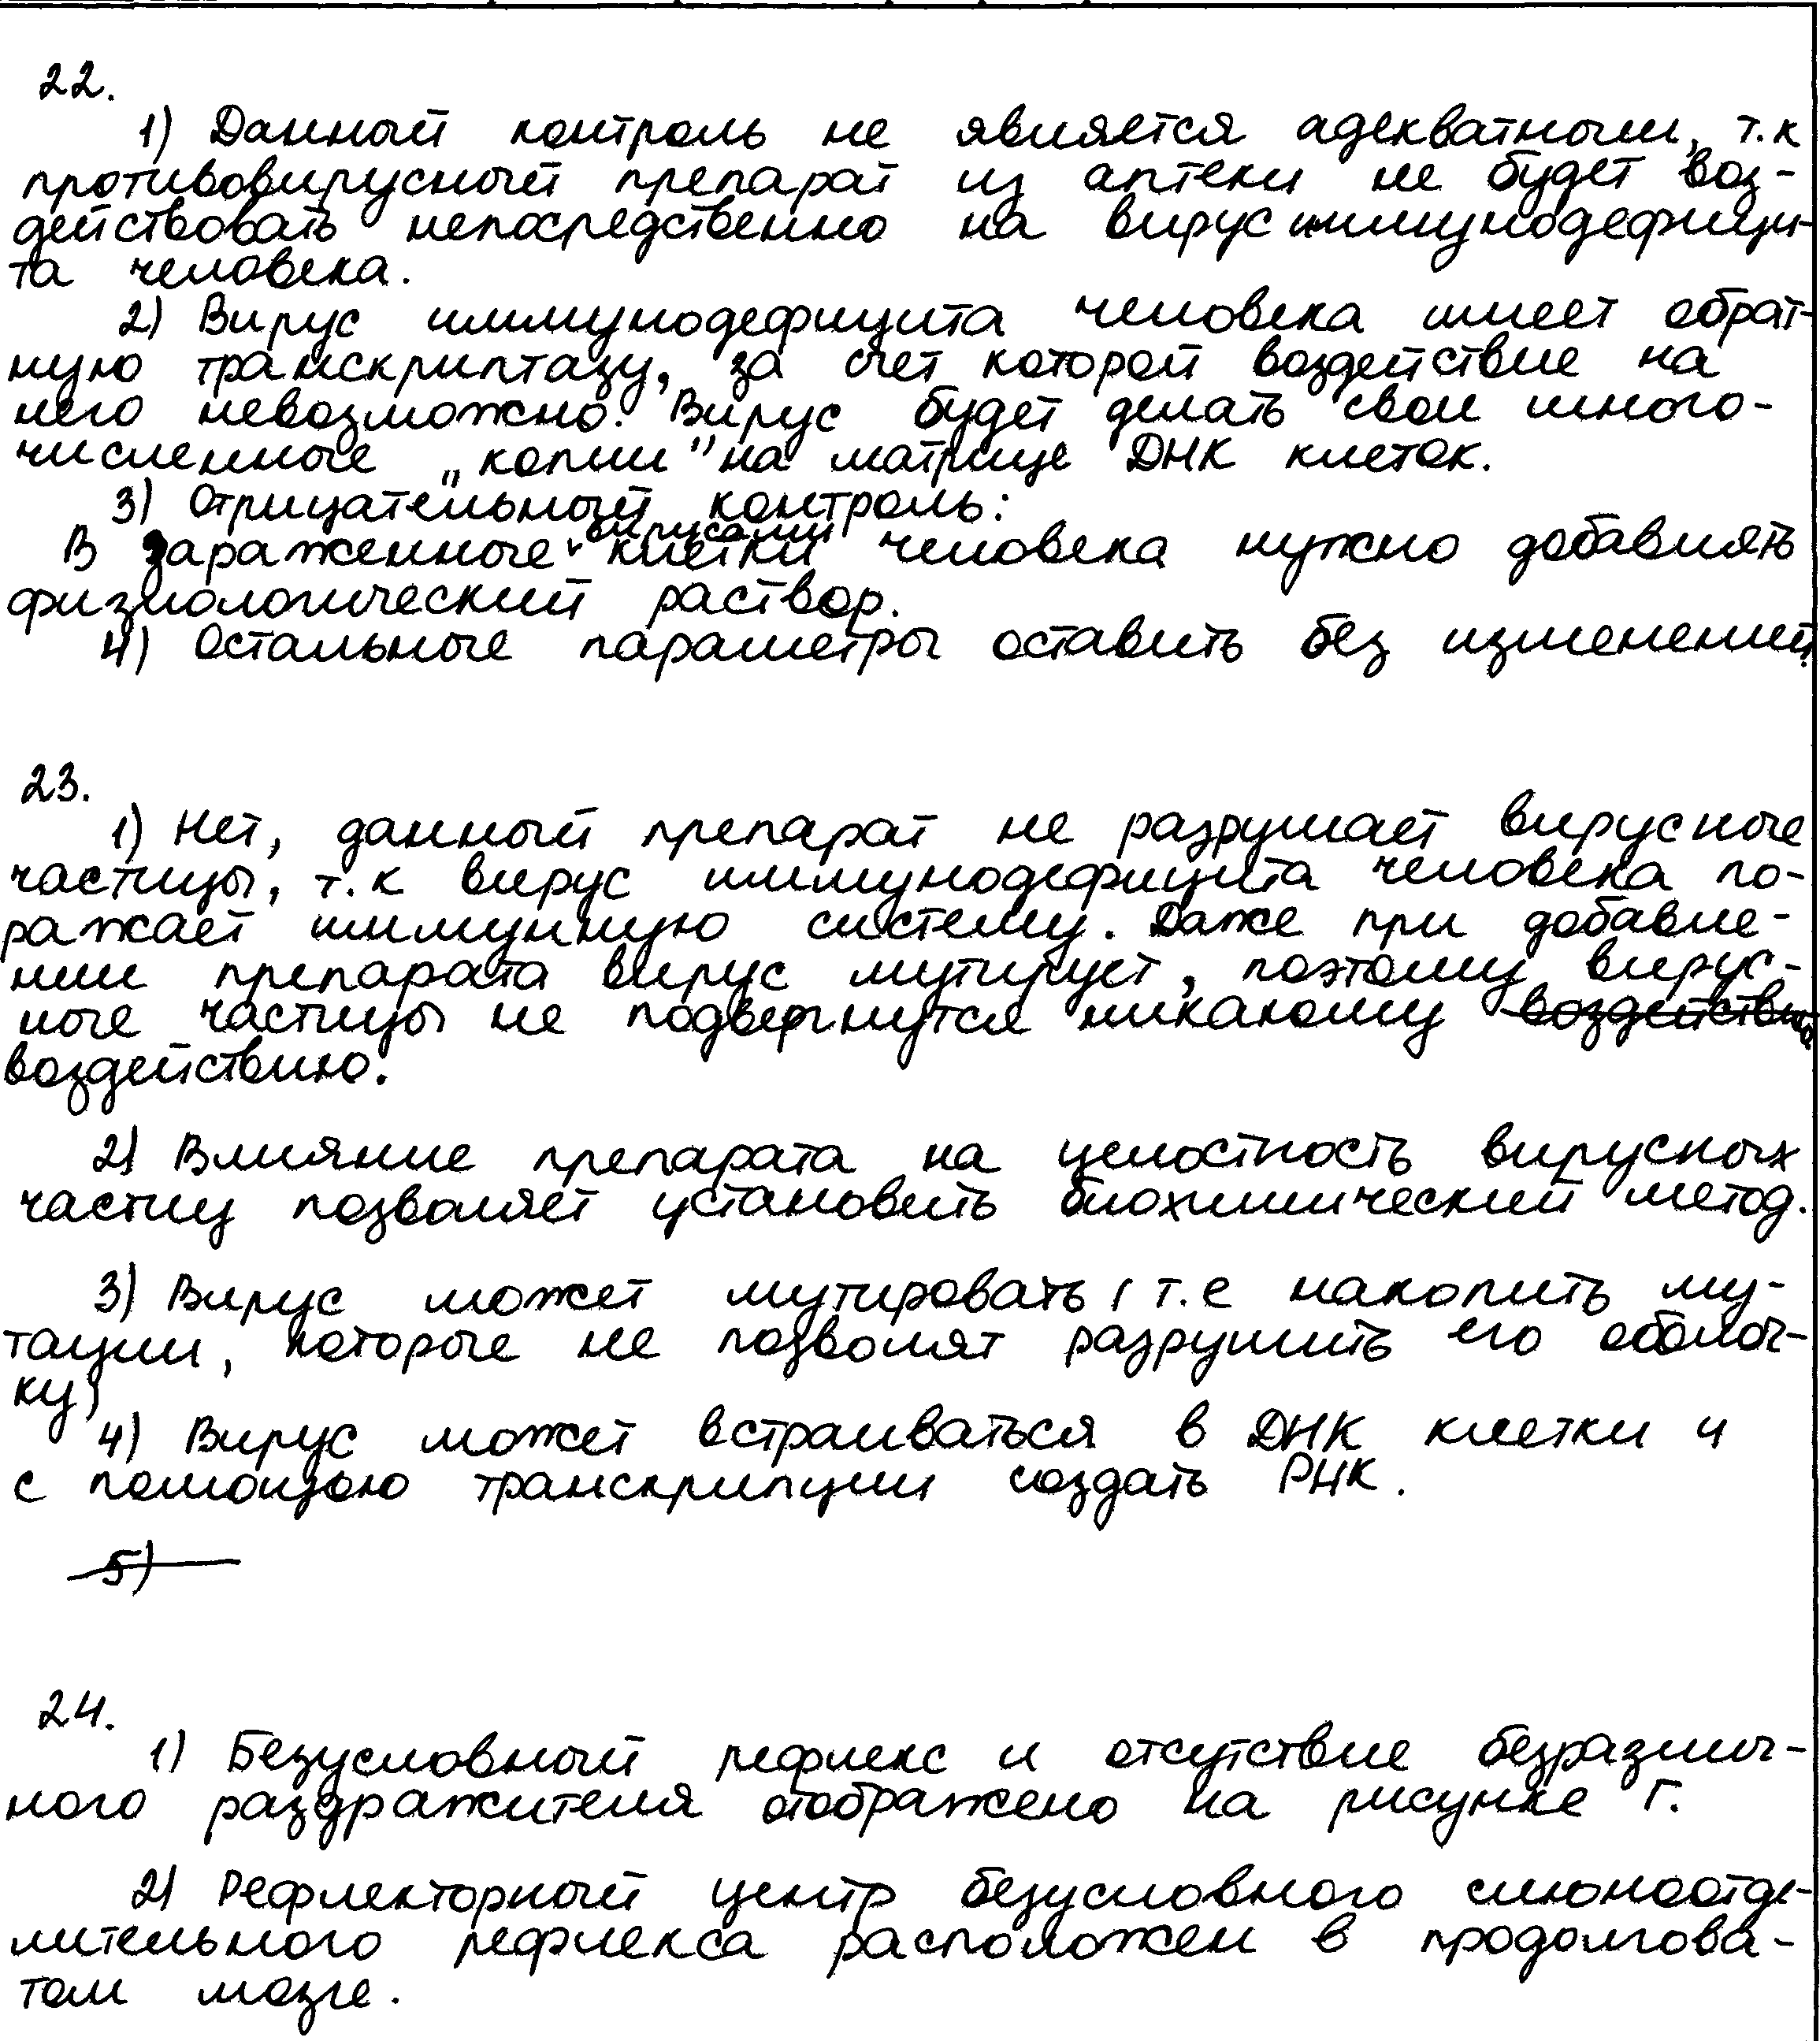 22.
1) Данный контроль не является адекватным, т.к
противовирусный препарат из аптеки не будет воз-
действовать непосредственно на вирус иммунодефици-
та человека.
2) Вирус иммунодефицита человека имеет обрат-
ную транскриптазу, за счет которой воздействие на
него невозможно. Вирус будет делать свои много-
численные „копии" на матрице ДНК клеток.
3) Отрицательный контроль:
В зараженные вирусами клетки человека нужно добавлять
физиологический раствор.
4) Остальные параметры оставить без изменений.
23.
1) Нет, данный препарат не разрушает вирусные
частицы, т.к вирус иммунодефицита человека по-
ражает иммунную систему. Даже при добавле-
нии препарата вирус мутирует, поэтому вирус-
ные частицы не подвергнутся никакому воздействию
воздействию.
2) Влияние препарата на целостность вирусных
частиц позволяет установить биохимический метод.
3) Вирус может мутировать (т.е накопить му-
тации, которые не позволят разрушить его оболоч-
ку)
4) Вирус может встраиваться в ДНК клетки и
с помощью транскрипции создать РНК.
5)
24.
1) Безусловный рефлекс и отсутствие безразлич-
ного раздражителя отображено на рисунке Г.
2) Рефлекторный центр безусловного слюноотде-
лительного рефлекса расположен в продолгова-
том мозге.